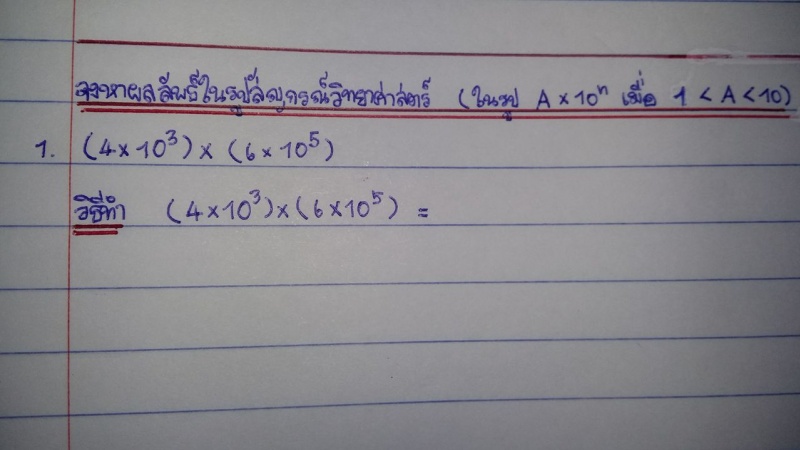 จงหาผลลัพธ์ในรูปสัญกรณ์วิทยาศาสตร์ (ในรูป A × 10ⁿ เมื่อ 1 < A < 10)
1. (4 × 10³) × (6 × 10⁵)
วิธีทำ (4 × 10³) × (6 × 10⁵) =